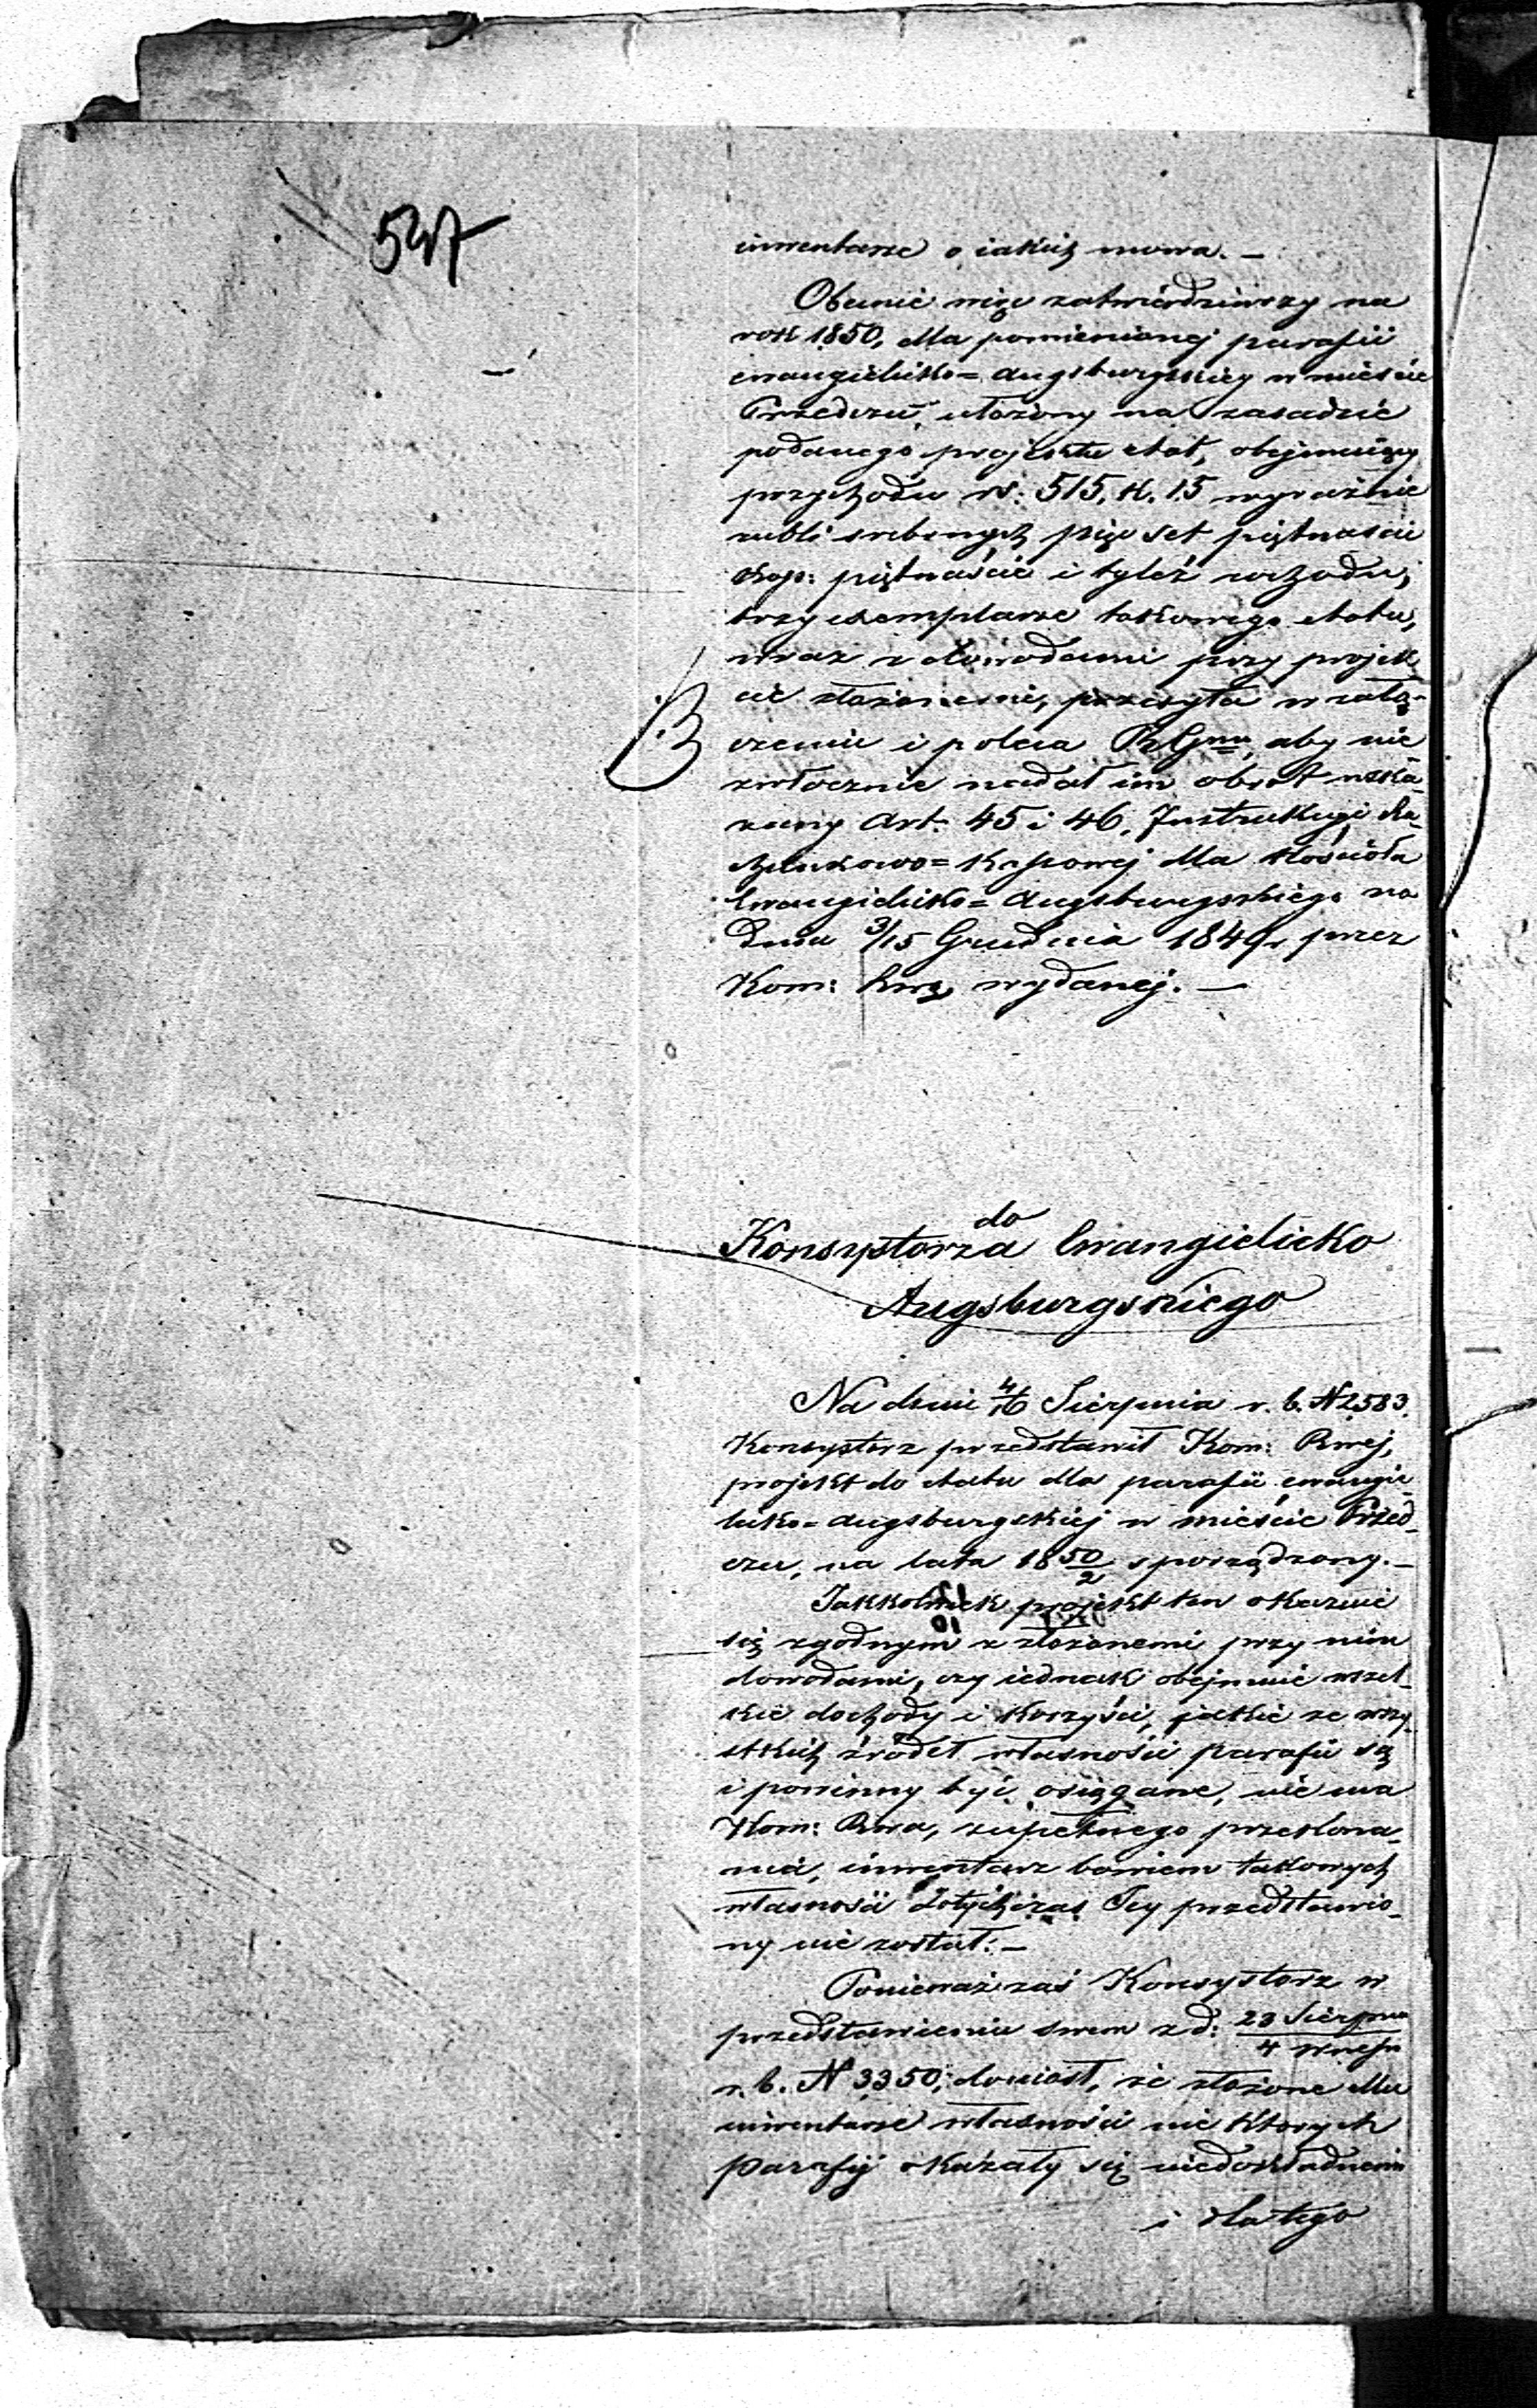 547
inwentarze o iakich mowa. —
Obecnie więc zatwierdziwszy na
rok 1850, dla pomienionej parafii
ewangielicko=augsburgskiey w mieście
Przedczu, ułożony na zasadzie
podanego projektu etat, obejmuiący
przychodu rs: 515, k. 15 wyraźnie
rubli srebrnych pięć set piętnaście
kop: piętnaście i tyleż rozchodu,
trzy exemplarze takowego etatu,
wraz z dowodami przy projek
cie złożonemi, przesyła w załą-
czeniu i poleca aby nie
zwłocznie nadał im obrot wska-
zany Art. 45 i 46, Instrukcyi Ra-
chunkowo=Kassowej dla Kościoła
Ewangielicko=Augsburgskiego na
dniu 3/15 Grudnia 1849 r przez
Kom: Rwą wydanej. —
do
Konsystorza Ewangielicko
Augsburgskiego
Na dniu 4/16 Sierpnia r. b. N 2583.
Konsystorz przedstawił Kom: Rwej,
projekt do etatu dla parafii ewangie-
licko=augsburgskiej w mieście Przed-
czu, na lata 1850/2 sporządzony. —
Jakkolwiek projekt ten okazuie
się zgodnym z złożonemi przy nim
dowodami, czy iednak obejmuie wszel-
kie dochody i korzyści, jakie ze wszy-
stkich źródeł własności parafii są
i powinny być osiągane, nie ma
Kom: Rwa, zupełnego przekona-
nia, inwentarz bowiem takowych
własności dotychczas Jey przedstawio-
ny nie został. —
Ponieważ zaś Konsystorz w
przedstawieniu swem z d: 23 Sierpnia / 4 Wrześn
r. b. N 3350, doniosł, że złożone Mu
inwentarze własności nie ktorych
parafij okazały się niedokładnemi
i dlatego